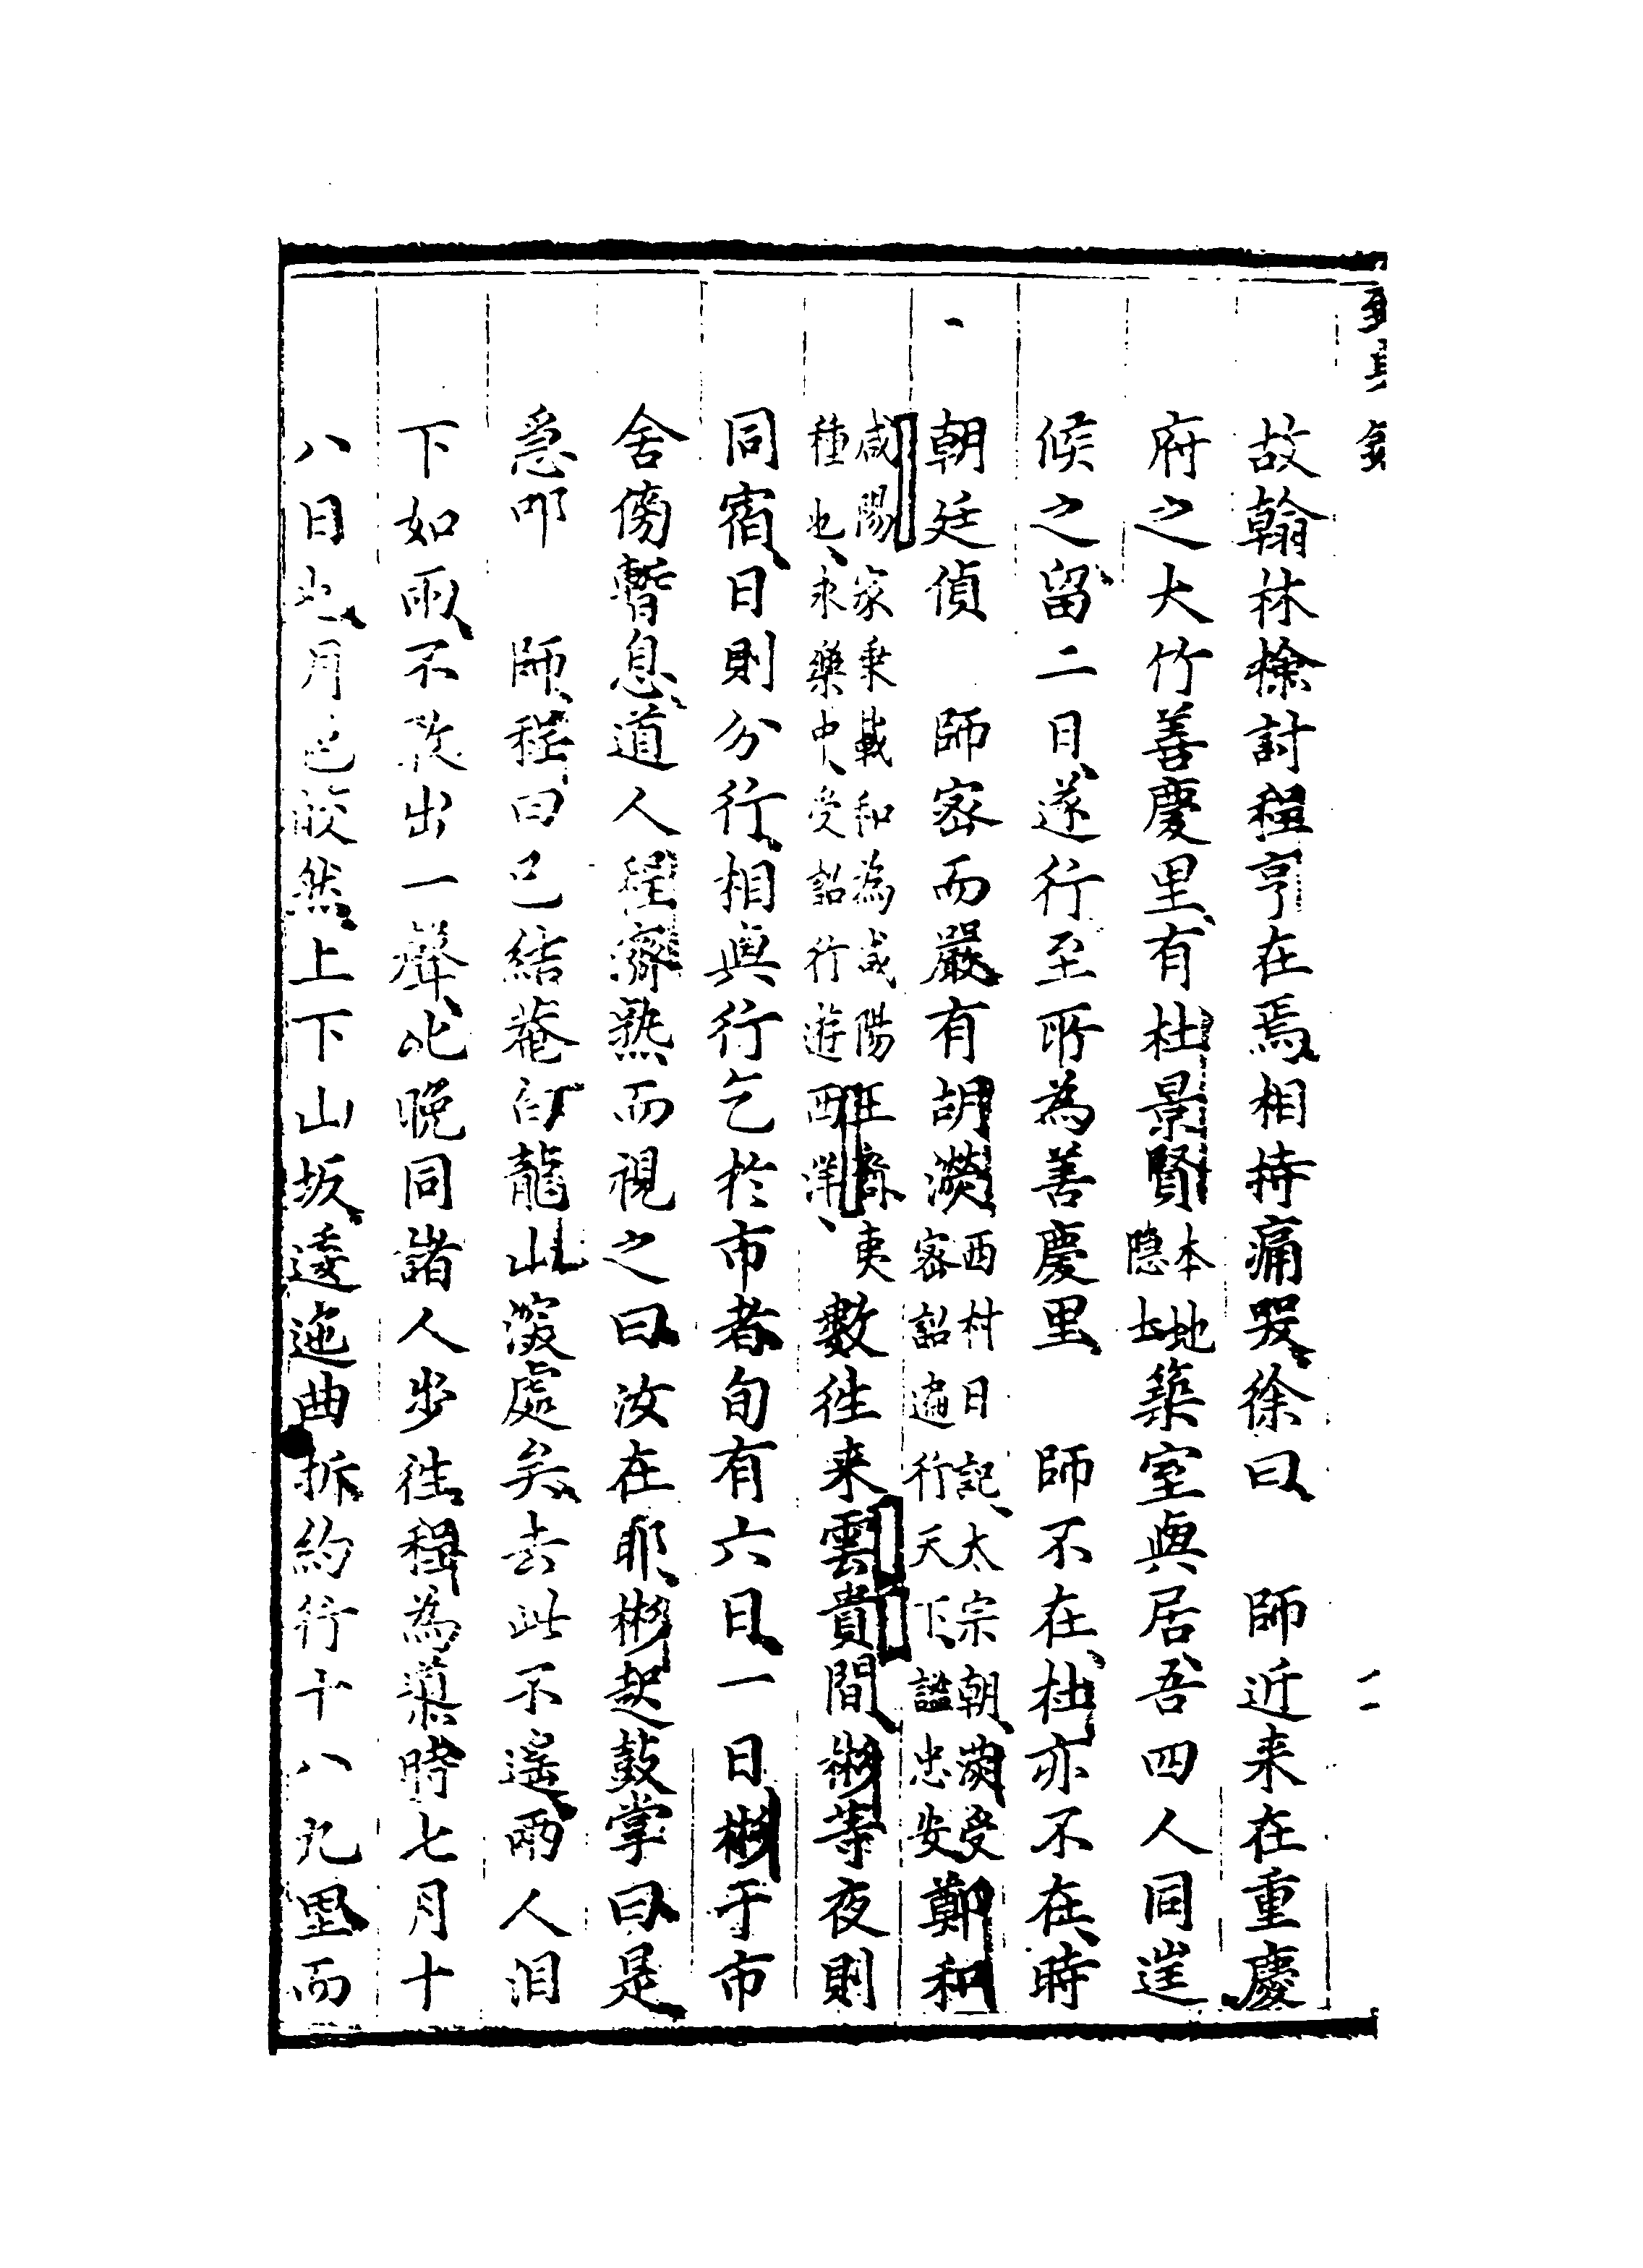 故翰林檢討程亨在焉相持痛哭徐曰　師近来在重慶
府之大竹善慶里有杜景賢本地隱士築室與居吾四人同遑
候之留二日遂行至所為善慶里　師不在杜亦不在時
朝廷偵　師密而嚴有胡濙西村日記太宗朝濙受密詔遍行天下諡忠安鄭和
咸陽家乘載和為咸陽王裔夷種也永樂中受詔行遊西洋數往来雲貴間彬等夜則
同宿日則分行相與行乞於市者旬有六日一日彬于市
舍傍暫息道人程濟熟而視之曰汝在耶彬起鼓掌曰是
急叩　師程曰已結菴白龍山深處矣去此不遙兩人泪
下如雨不敢出一聲此晚同諸人步往程為導時七月十
八日也月色皎然上下山坂逶迤曲折約行十八九里而
二